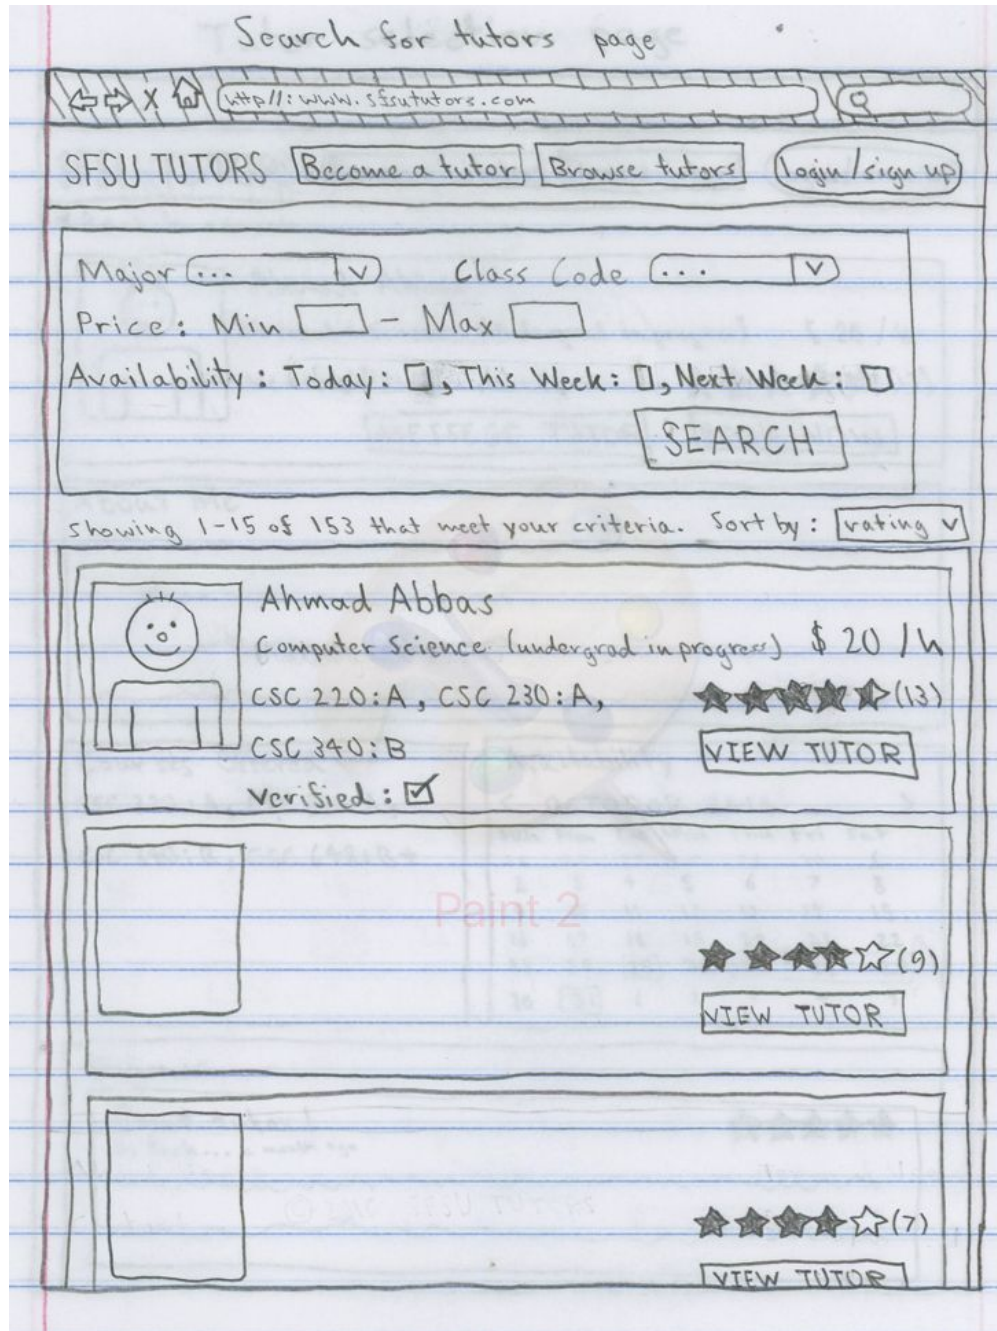 Search for tutors page
X http//:www.sfsututors.com
SFSU TUTORS Become a tutor Browse tutors login/sign up
Major ... V Class Code ... V
Price: Min - Max
Availability: Today: , This Week: , Next Week:
SEARCH
showing 1-15 of 153 that meet your criteria. Sort by: rating v
Ahmad Abbas
Computer Science (undergrad in progress) $ 20 /h
CSC 220:A, CSC 230:A, (13)
CSC 340:B VIEW TUTOR
Verified:
Paint 2
(9)
VIEW TUTOR
(7)
VIEW TUTOR